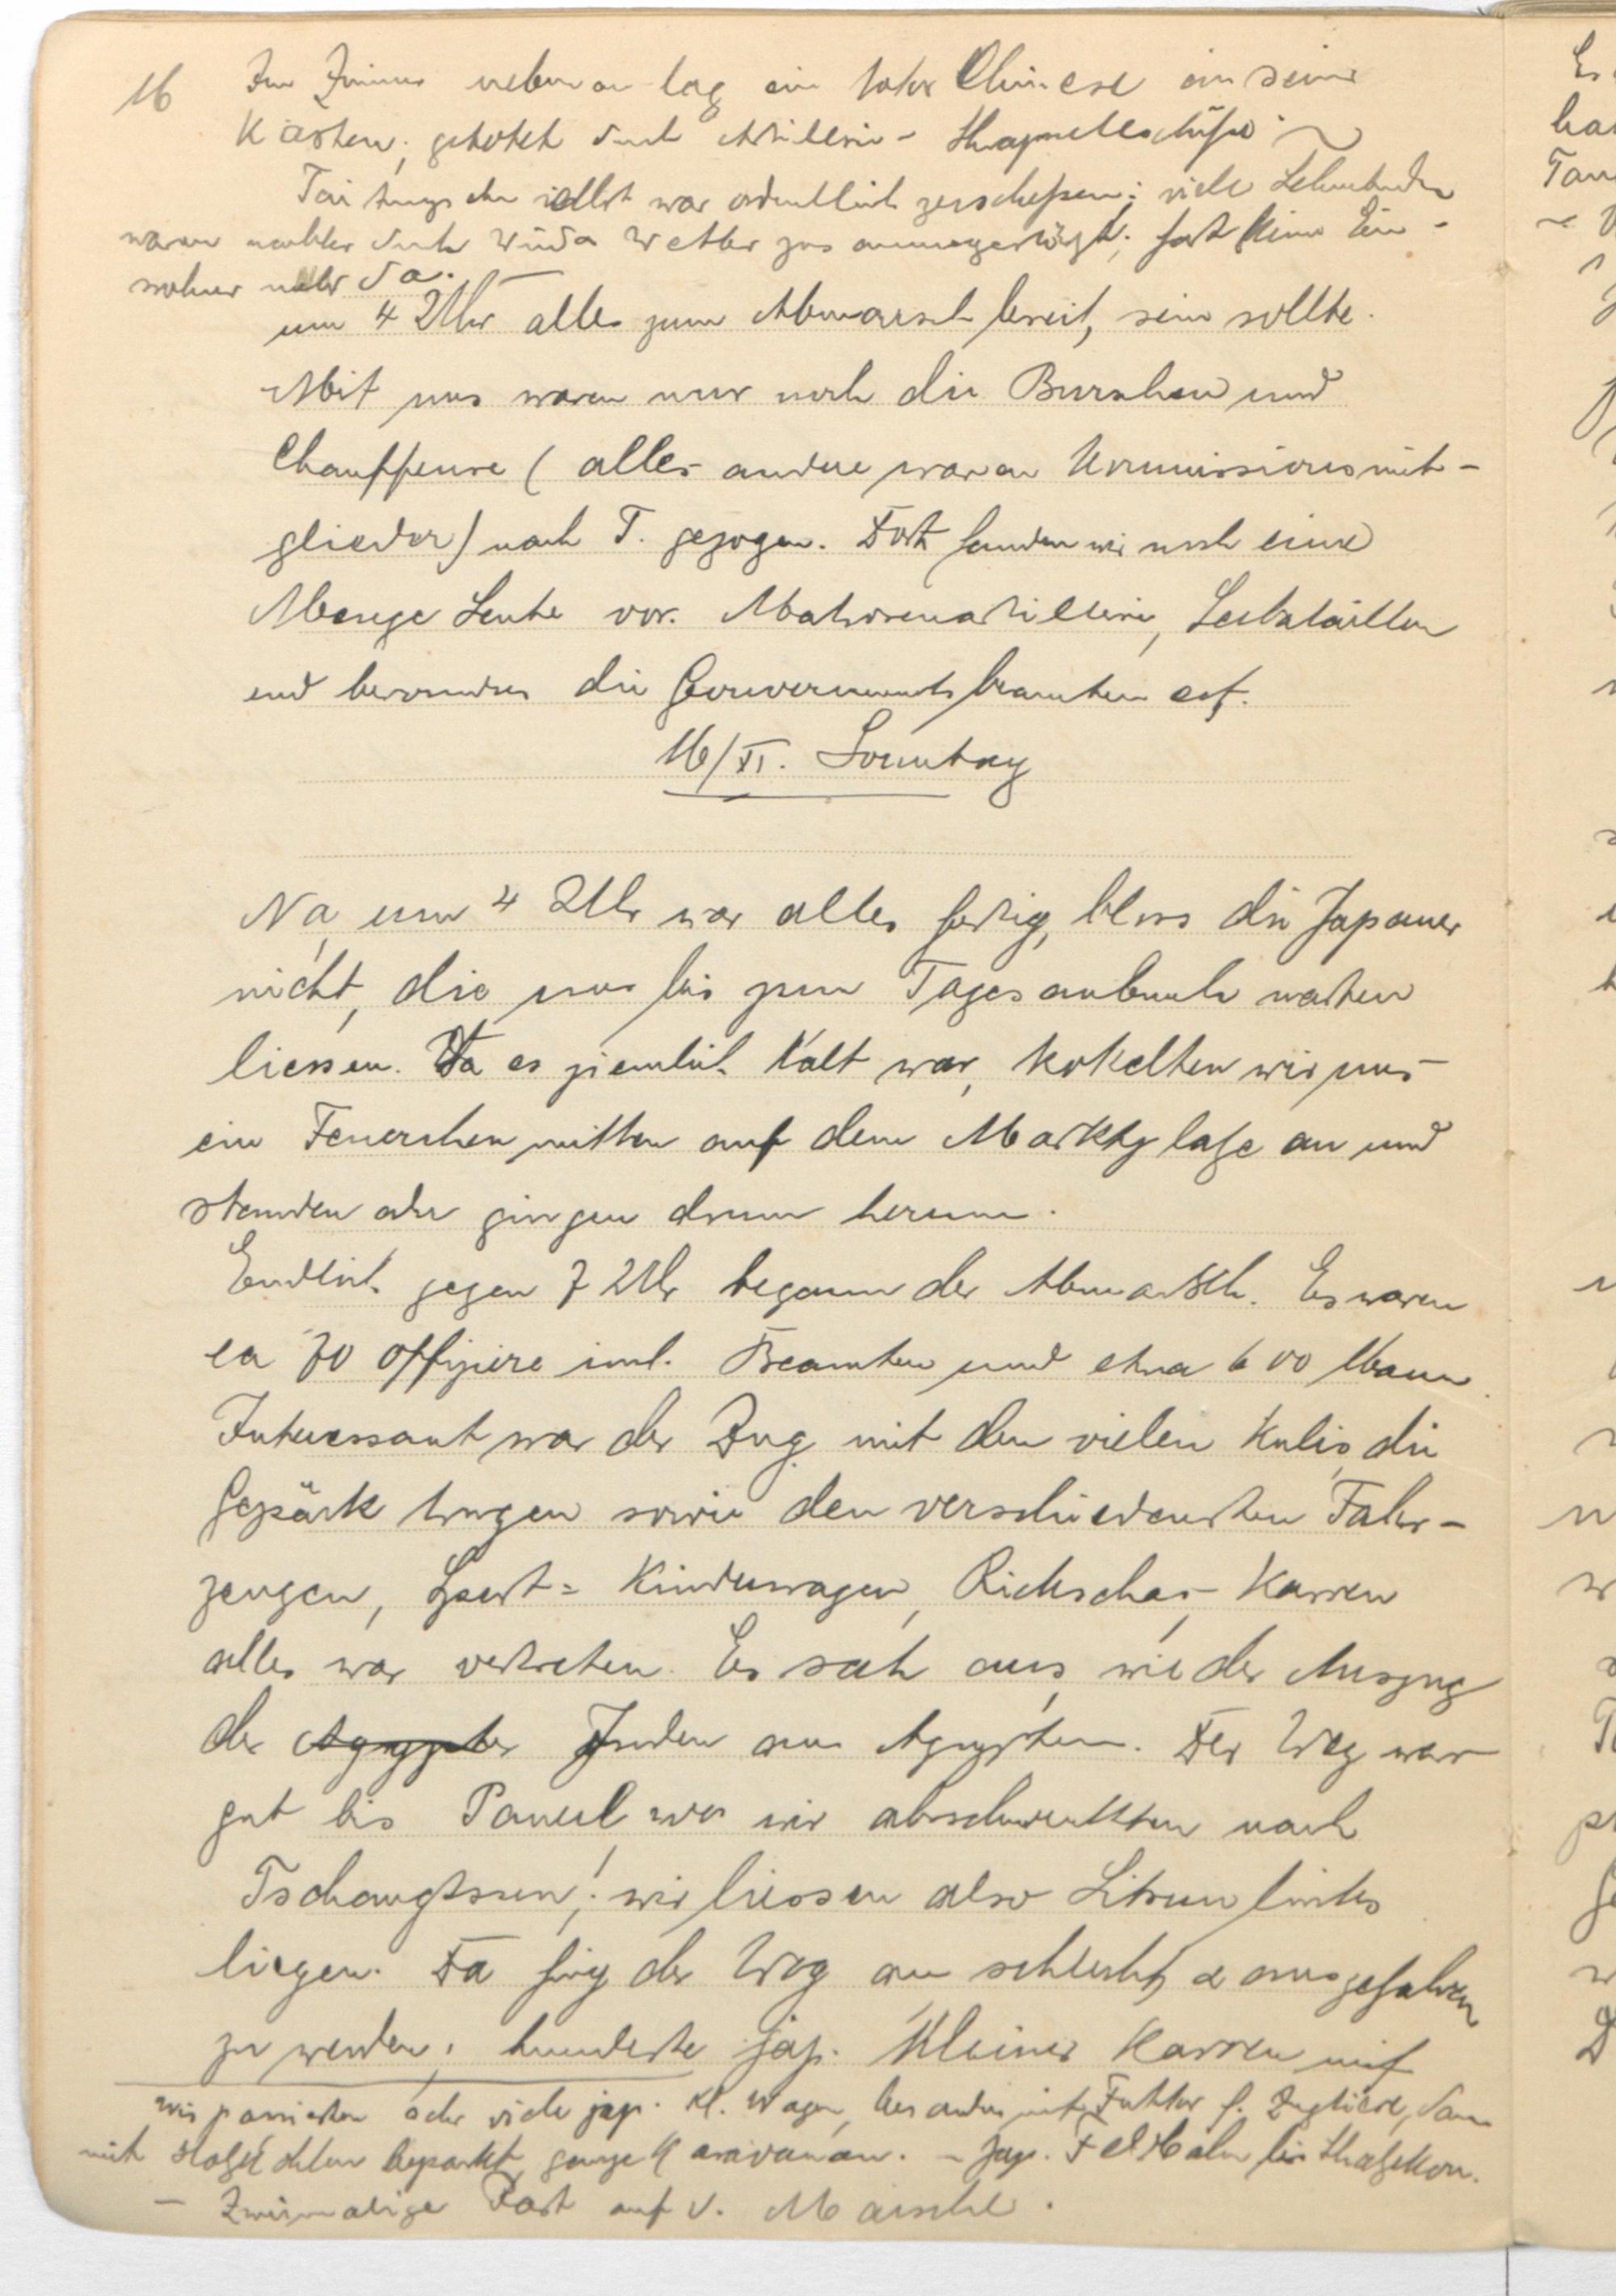 16
Im Zimmer nebenan lag ein toter Chinese in seinem
Kasten, getötet durch Artillerie-Shrapnellschüße
Taitungschen selbst war ordentlich zerschoßen; viele Lehmbuden
waren nachher durch Wind u Wetter zusammengestürzt; fast keine Ein-
wohner mehr da.
um 4 Uhr alles zum Abmarsch bereit, sein sollte.
Mit uns waren nur noch die Burschen und
Chauffeure (alles andere waren Kommissionsmit-
glieder) nach T. gezogen. Dort fanden wir noch eine
Menge Leute vor. Matrosenartillerie, Seebataillon
und besonders die Gouvernementsbeamten ect.
16/XI. Sonntag
Na, um 4 Uhr war alles fertig, bloss die Japaner
nicht, die uns bis zum Tagesanbruch warten
liessen. Da es ziemlich kalt war, kokelten wir uns
ein Feuerchen mitten auf dem Marktplaße an und
standen oder gingen drum herum.
Endlich gegen 7 Uhr begann der Abmarsch. Es waren
ca 70 Offiziere incl. Beamten und etwa 600 Mann.
Interessant war der Zug mit den vielen Kulis, die
Gepäck trugen sowie den verschiedensten Fahr-
zeugen, Sport= Kinderwagen, Rickschas, Karren
alles war vertreten. Es sah aus, wie der Auszug
der Agypter Juden aus Agypten. Der Weg war
gut bis Paneul, wo wir abschwenkten nach
Tschangtsun; wir liessen also Litsun links
liegen. Da fing der Weg an schlecht, & ausgefahren
zu werden; hunderte jap. kleiner Karren mit
wir passierten sehr viele jap. kl. Wagen, besonders mit Futter f. Zugtiere, dann
mit beparkt, ganze Karavanen. - Jap. Feldbahn bis
- Zweimalige Rast auf d. Marsche.